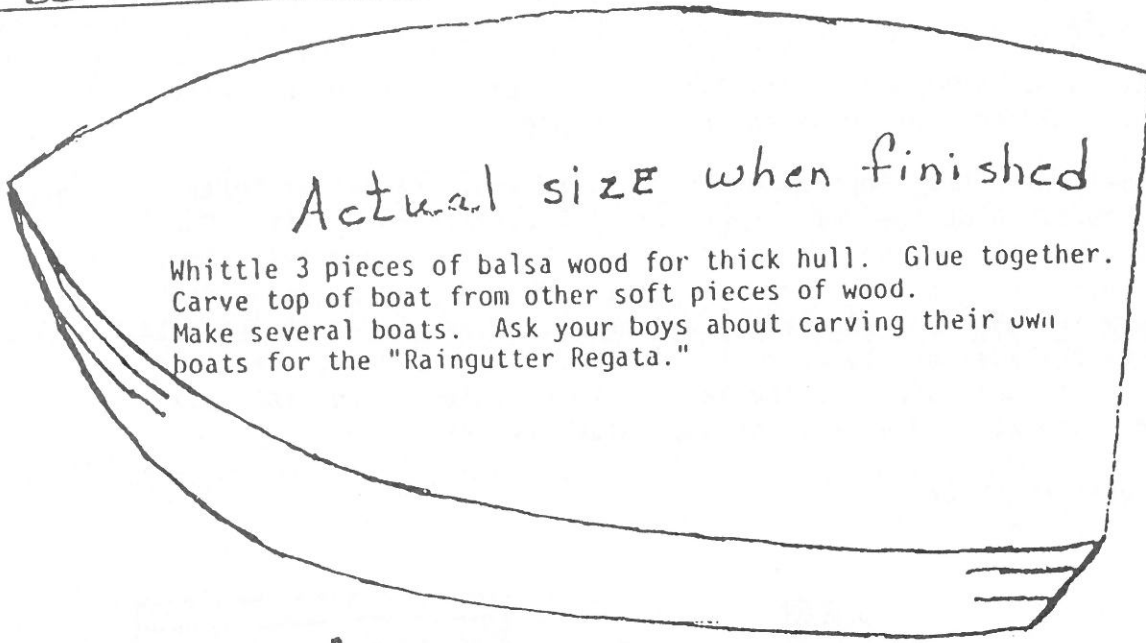 Actual sizE when finished
Whittle 3 pieces of balsa wood for thick hull. Glue together.
Carve top of boat from other soft pieces of wood.
Make several boats. Ask your boys about carving their own
boats for the "Raingutter Regata."